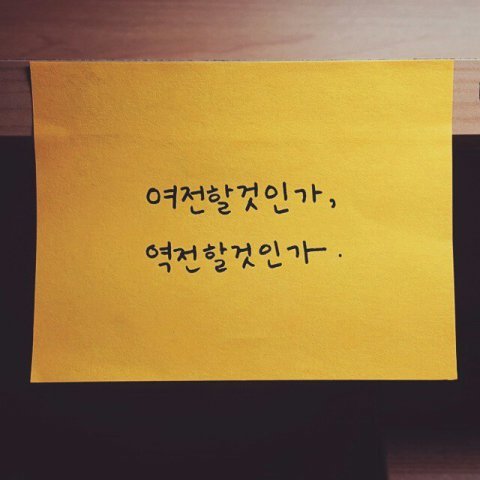 여전할것인가,
역전할것인가.